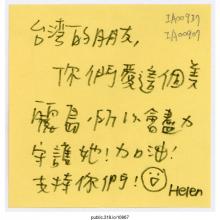 IA00937
IA00907
台灣的朋友,
你們愛這個美
麗島,所以會盡力
守護她!加油!
支持你們!
Helen
public.318.io/10967